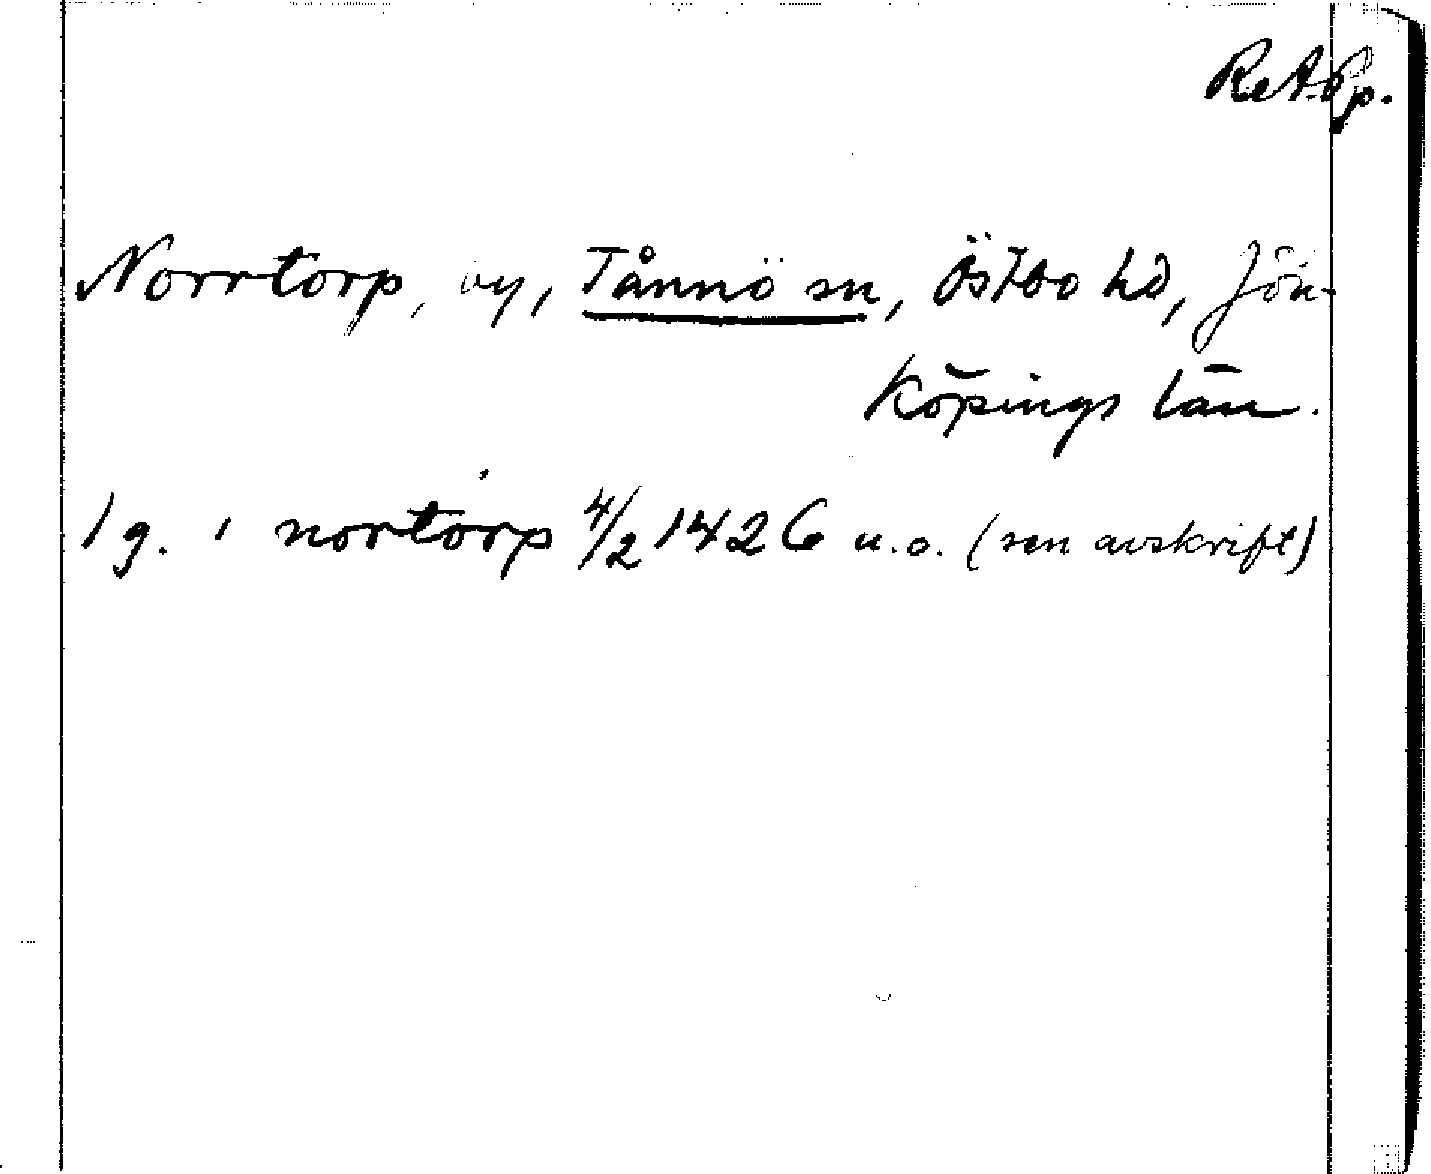 RetPp.
Norrtorp, by, Tånnö sn, Östbo hd, Jön-
köpings län.
1 g. i nortorp 4/2 1426 u.o. (sen avskrift)